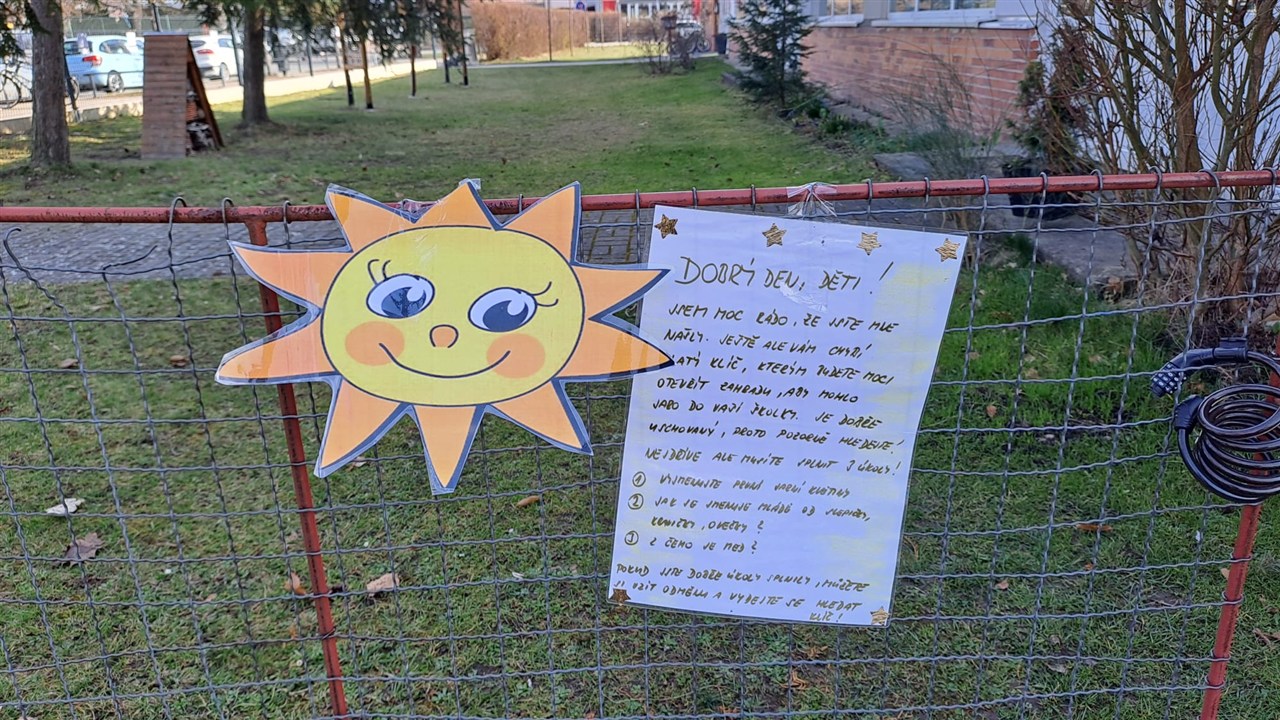 DOBRÝ DEN, DĚTI!
JSEM MOC RÁDO, ŽE JSTE MLE
NAŠLY. JEŠTĚ ALE VÁM CHYBÍ
ZLATÝ KLÍČ, KTERÝM BUDETE MOCI
OTEVŘÍT ZAHRADU, ABY MOHLO
JARO DO VAŠÍ ŠKOLKY. JE DOBŘE
USCHOVANÝ, PROTO POZORNĚ HLEDEJTE!
NEJDŘÍVE ALE MUSÍTE SPLNIT 3 ÚKOLY!
① VYJMENUJTE PRVNÍ JARNÍ KVĚTINY
② JAK SE JMENUJE MLÁDĚ OD SLEPIČKY,
OVEČKY?
③ Z ČEHO JE MED?
POKUD JSTE DOBŘE ÚKOLY SPLNILY, MŮŽETE
SI VZÍT ODMĚNU A VYDEJTE SE HLEDAT
KLÍČ!